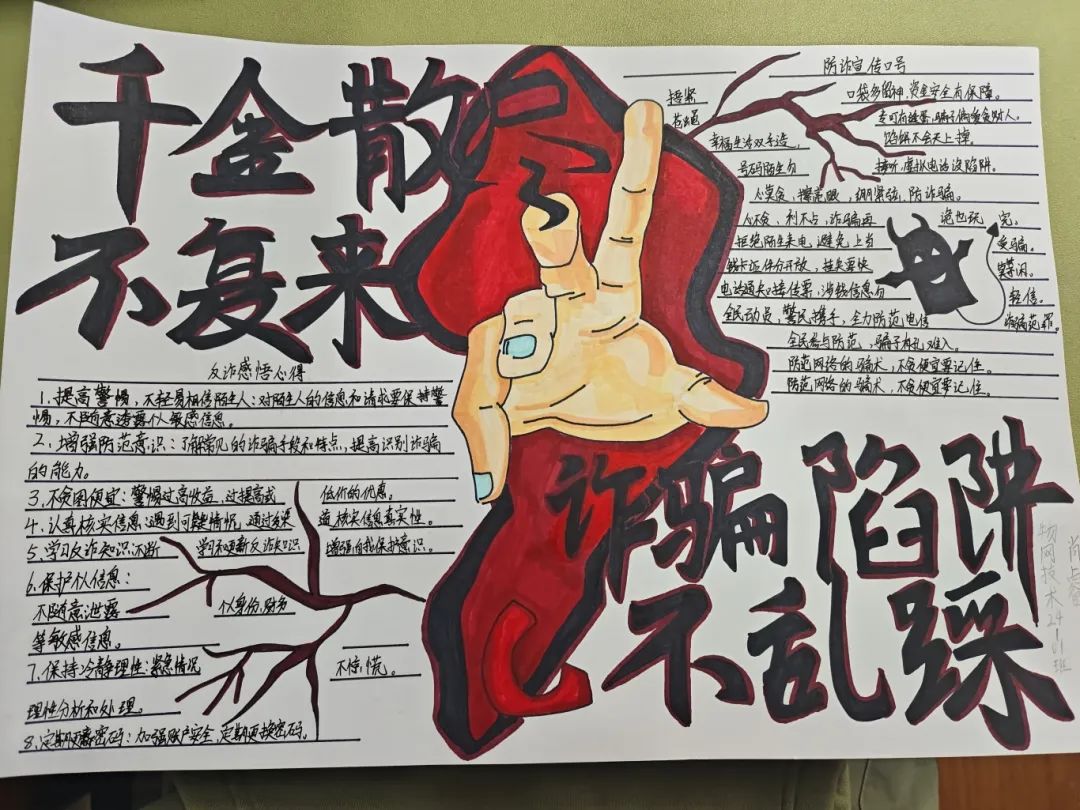 千金散尽
不复来
反诈感悟心得
1.提高警惕，不轻易相信陌生人：对陌生人的信息和请求要保持警
惕，不随意透露个人敏感信息。
2.增强防范意识：了解常见的诈骗手段和特点，提高识别诈骗
的能力。
3.不贪图便宜：警惕过高收益、过提高或 低价的优惠。
4.认真核实信息：遇到可疑情况，通过多渠 道核实信息真实性。
5.学习反诈知识：不断 学习和更新反诈知识 增强自我保护意识。
6.保护个人信息：
不随意泄露 个人身份、财务
等敏感信息。
7.保持冷静理性：紧急情况 不惊慌。
理性分析和处理。
8.定期更新密码：加强账户安全，定期更换密码。
防诈宣传口号
捂紧 口袋多留神，资金安全有保障。
幸福生活双手造， 馅饼不会天上掉。
号码陌生勿 接听，虚拟电话设陷阱。
心莫贪，擦亮眼，绷紧弦，防诈骗。
心不贪，利不占，诈骗再 诡也玩 完。
拒绝陌生来电，避免上当 受骗。
钱卡证件分开放，挂失要快
电话通知接传票，涉钱信息勿 轻信。
全民动员，警民携手，全力防范电信 诈骗犯罪。
全民参与防范，骗子有孔难入。
防范网络的骗术，不贪便宜要记住。
防范网络的骗术，不贪便宜要记住。
诈骗陷阱
不乱踩
物网技术24-01班